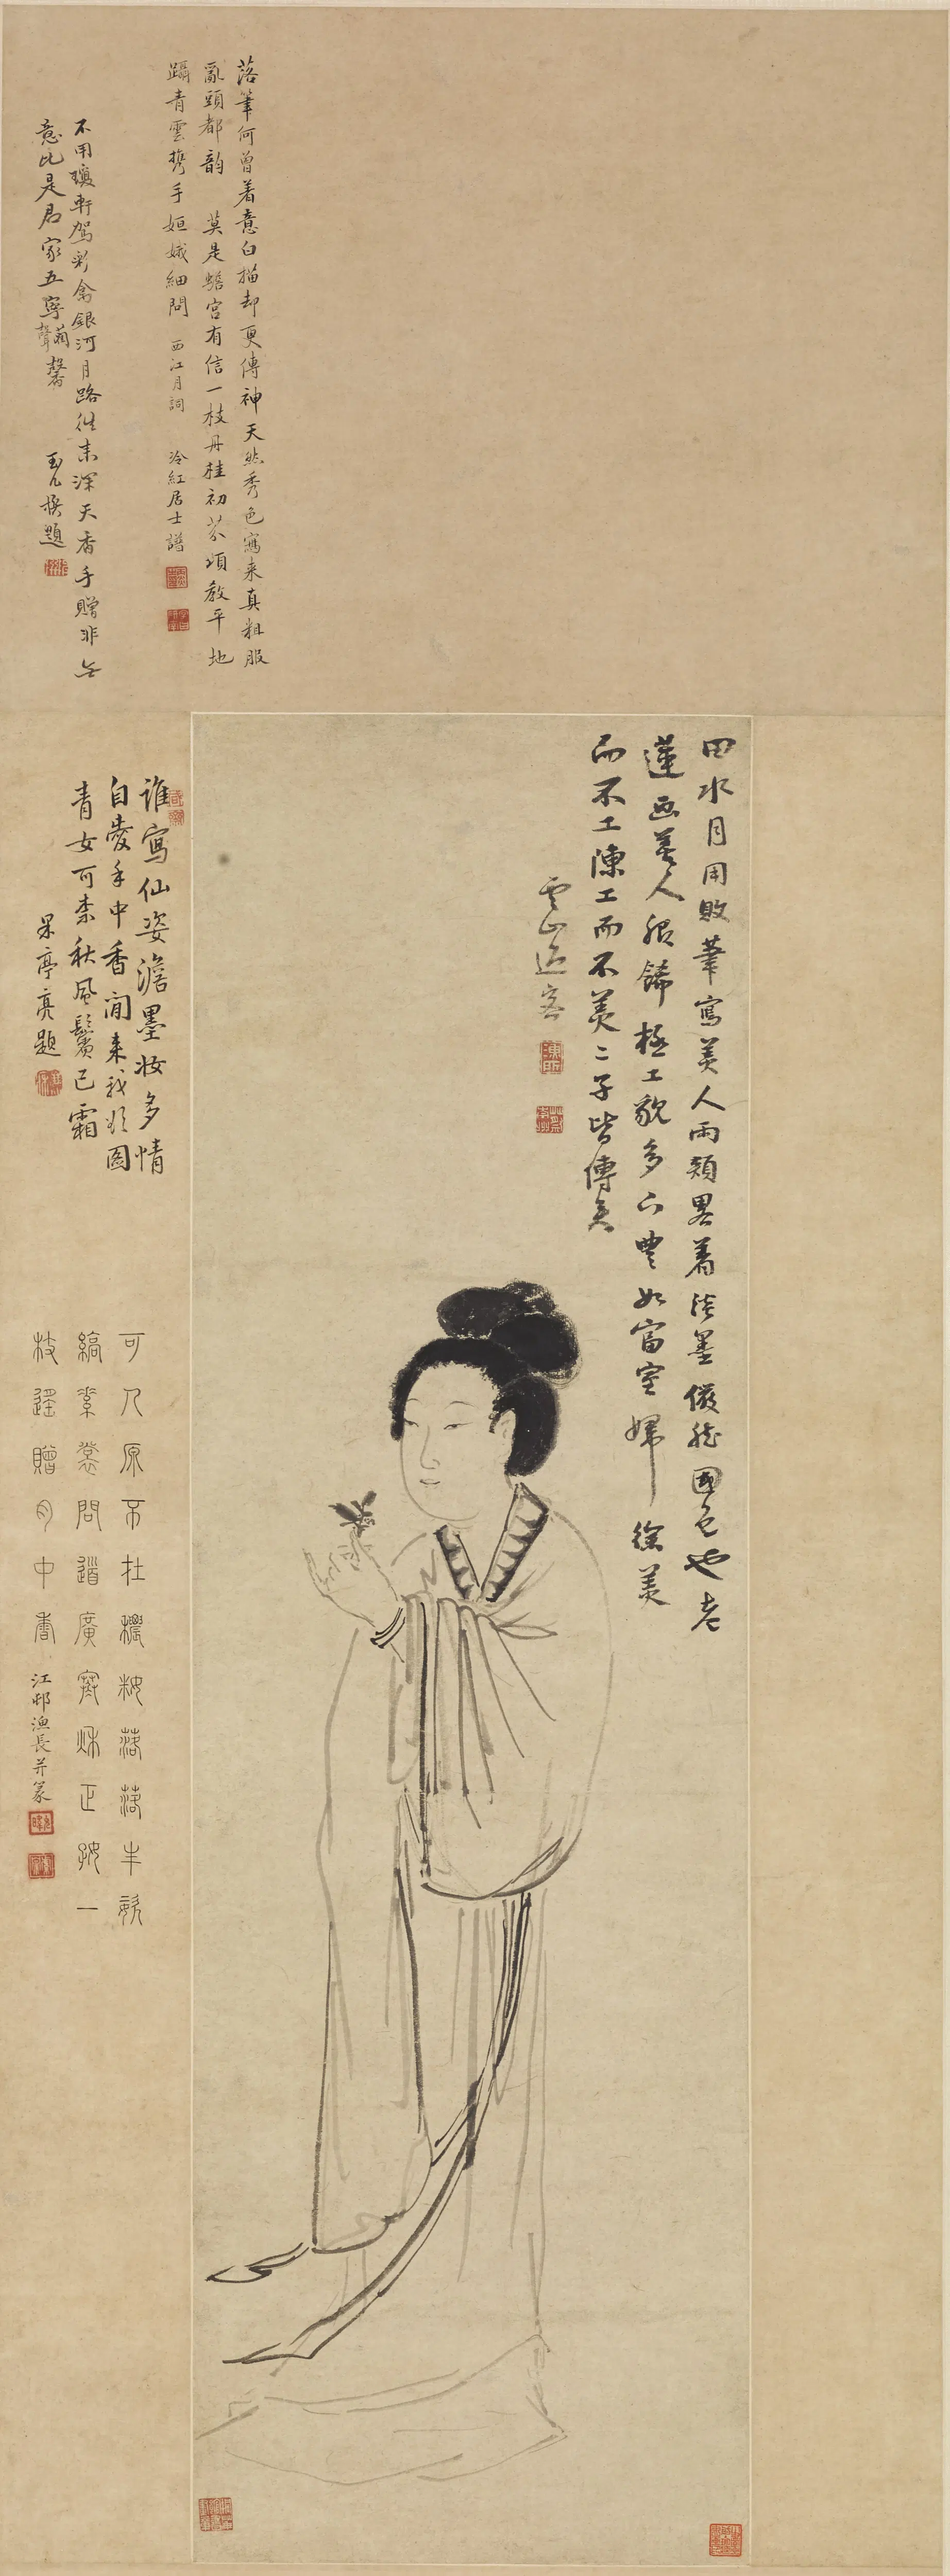 落筆何曾着意白描却更傳神天然秀色寫来真粗服
亂頭都韵 莫是蟾宮有信一枝丹桂初芬須教平地
躡青雲攜手姮娥細問 西江月詞 冷紅居士譜
不用瓊軒駕彩禽銀河月路往未深天香手贈非無
意比是君家五寧馨
題
田水月用敗筆寫美人兩頰畧着淡墨儼然國色也老
蓮画美人服飾極工貌多不豐如富室婦徐美
而不工陳工而不美二子皆傳矣
雲山逸客
誰寫仙姿澹墨妝多情
自愛手中香閒来我欲圖
青女可柰秋風鬢已霜
杲亭亮題
可人原不在穠妝落落丰姿
縞素裳問道廣寒秋正好一
枝遥贈月中香 江邨漁長并篆